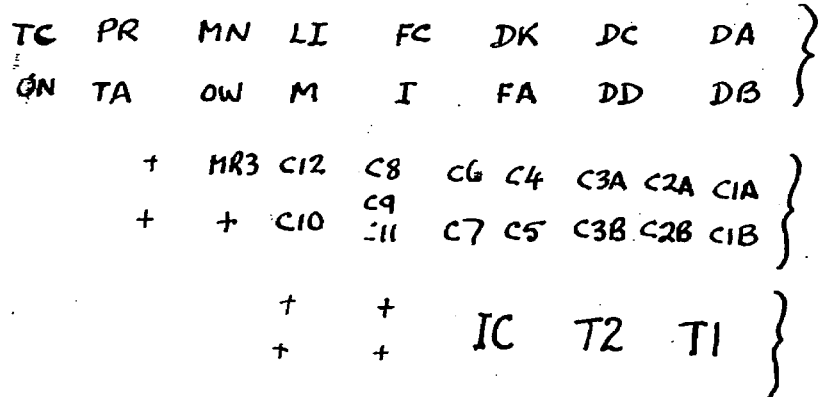 TC PR MN LI FC DK DC DA
ØN TA OW M I FA DD DB
+ MR3 C12 C8 C6 C4 C3A C2A C1A
C9
+ + C10 C7 C5 C3B C2B C1B
+ +
IC T2 T1
+ +